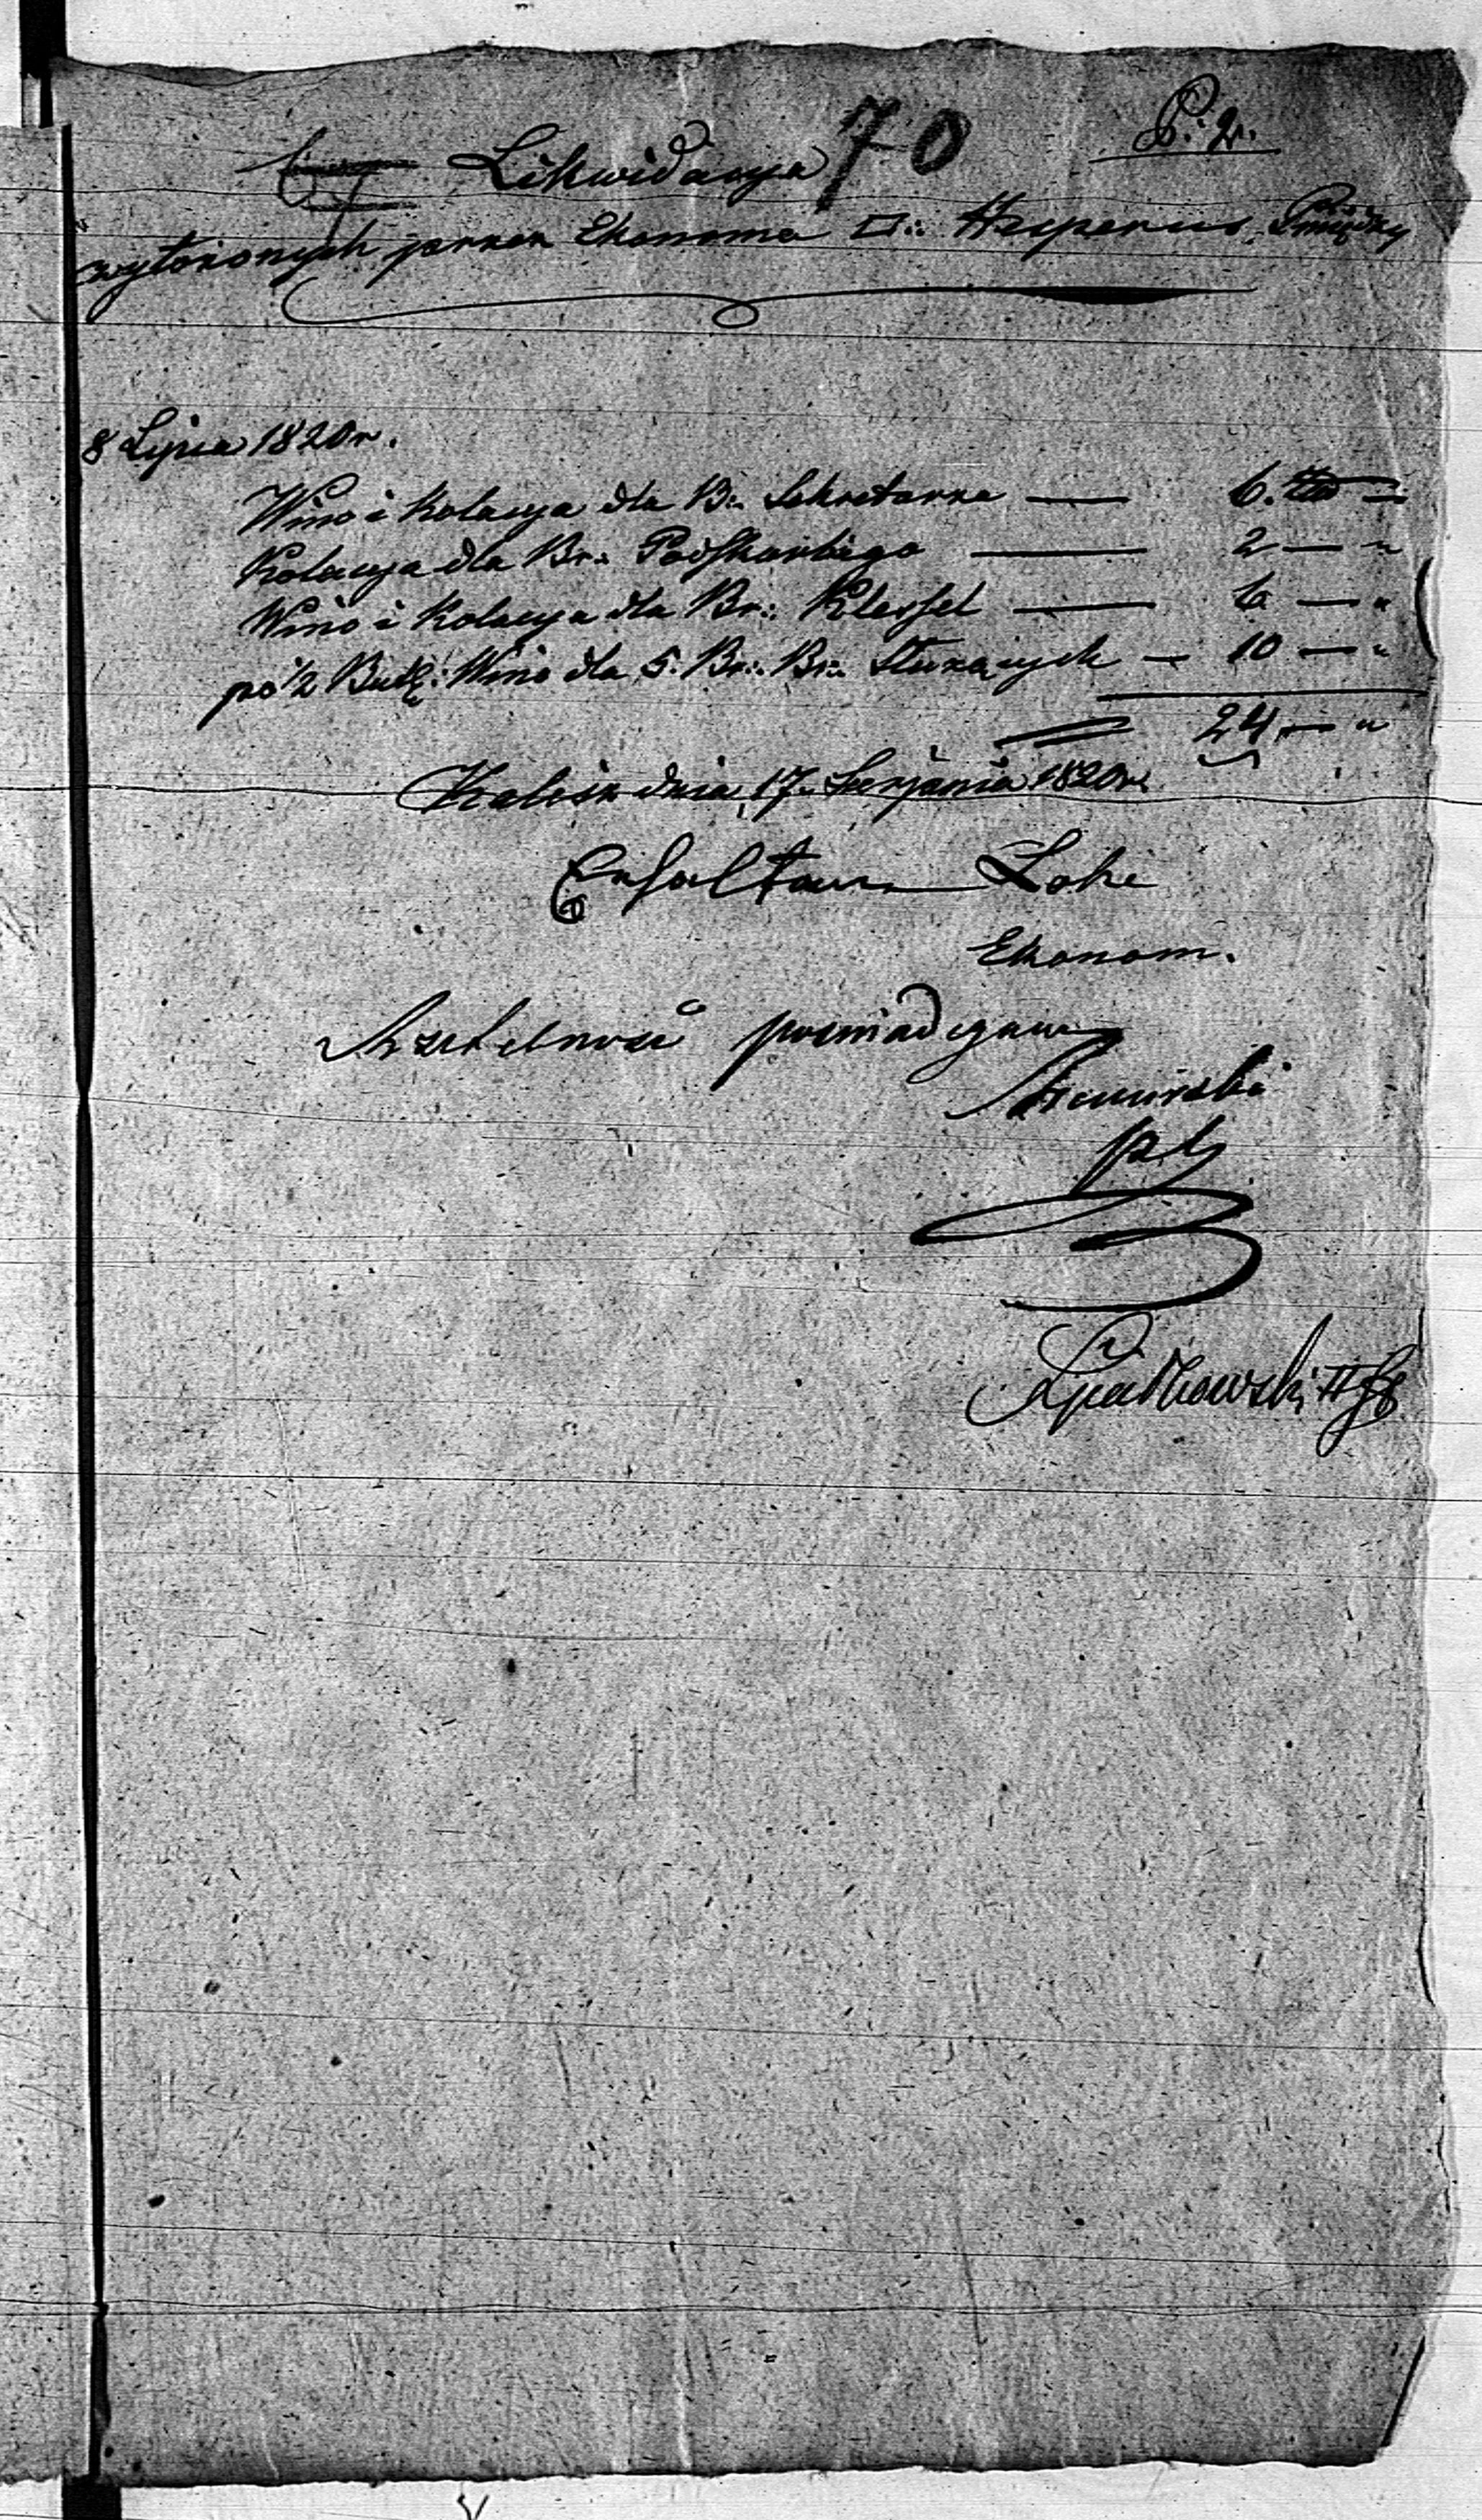 70
P. 2.
Likwidacya
wyłożonych przez Ekonoma □∴ Hesperus, Pieniędzy
8 Lipca 1820 r.
Wino i Kolacya dla B∴ Sekretarza — 6.
Kolacya dla Br∴ Podskarbiego — 2 — "
Wino i Kolacya dla Br∴ Klessel — 6 — "
po ½ Butl: Wina dla 5. Br∴ Br∴ Służących — 10 — "
24 — "
Kalisz dnia 17. Sierpnia 1820 r.
Lohe
Ekonom.
Rzetelność poswiadczam